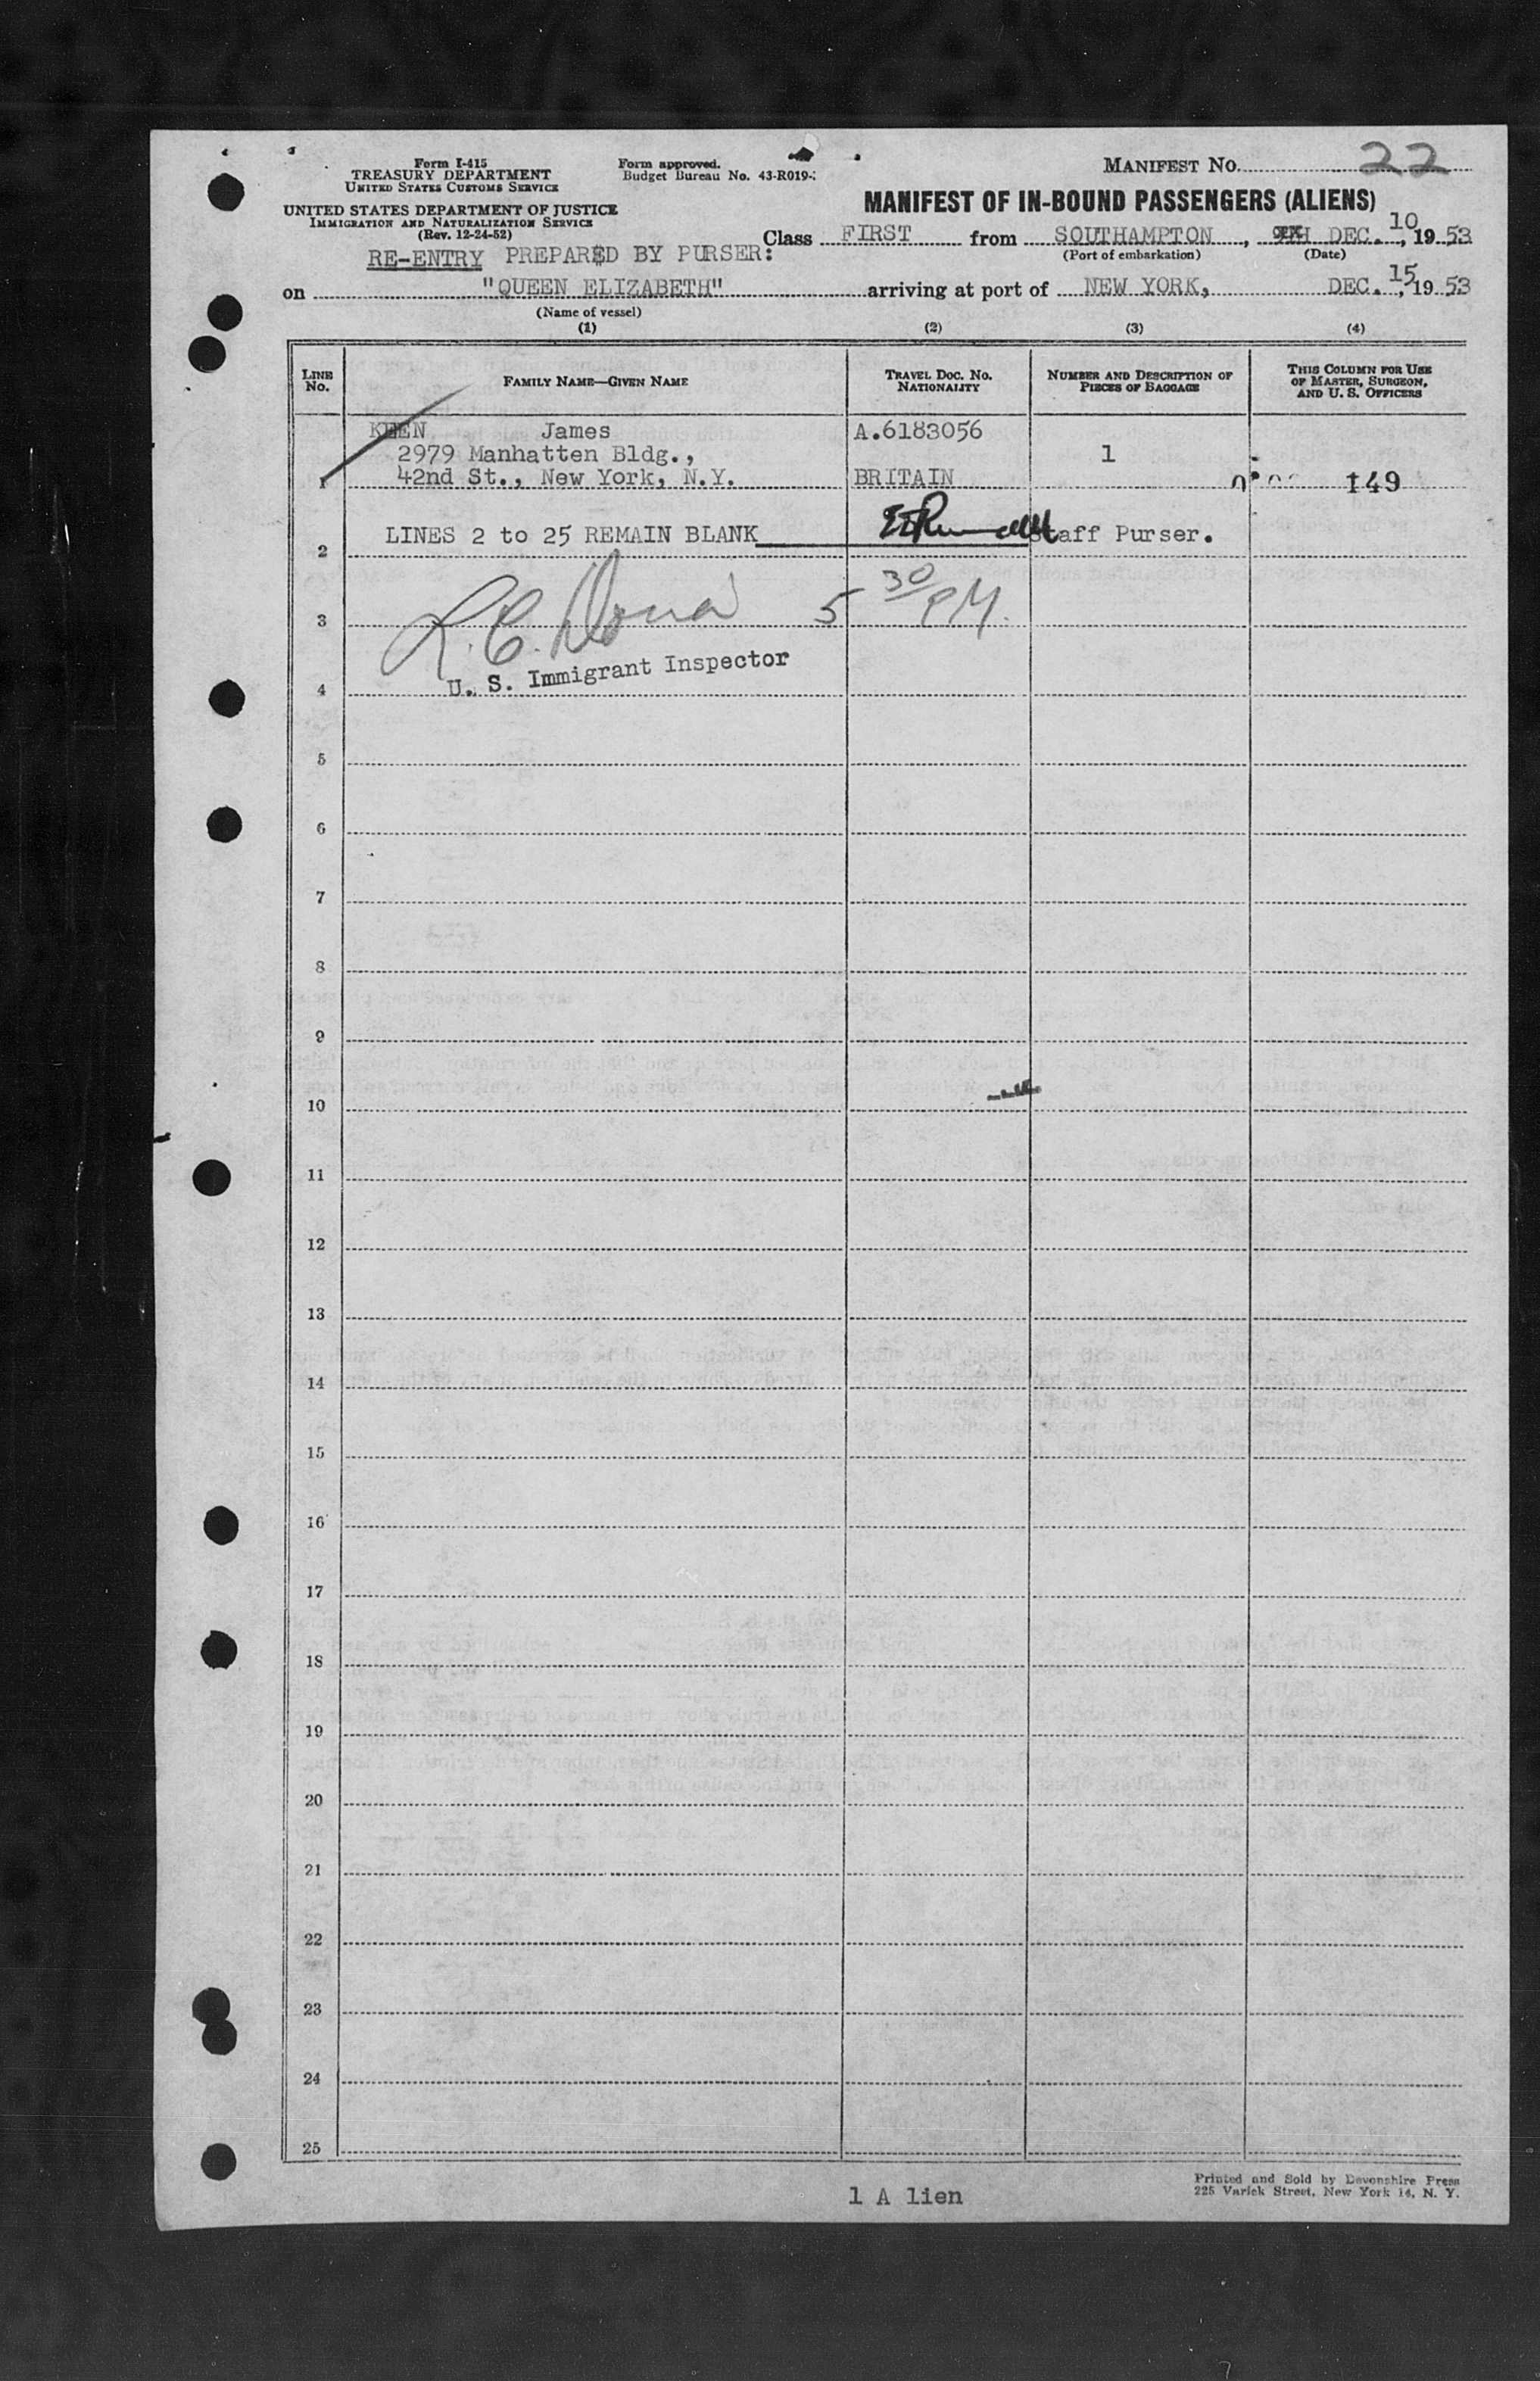 Form I-415
TREASURY DEPARTMENT
UNITED STATES CUSTOMS SERVICE
UNITED STATES DEPARTMENT OF JUSTICE
IMMIGRATION AND NATURALIZATION SERVICE
(Rev. 12-24-52)
Form approved.
Budget Bureau No. 43-R019-
MANIFEST NO. 22
MANIFEST OF IN-BOUND PASSENGERS (ALIENS)
RE-ENTRY PREPAR$D BY PURSER:
Class FIRST from SOUTHAMPTON, DEC. 10, 19 53
(Port of embarkation) (Date)
on "QUEEN ELIZABETH" arriving at port of NEW YORK, DEC. 15, 19 53
(Name of vessel)
(1) (2) (3) (4)
LINE NO.
FAMILY NAME—GIVEN NAME
TRAVEL DOC. NO. NATIONALITY
NUMBER AND DESCRIPTION OF PIECES OF BAGGAGE
THIS COLUMN FOR USE OF MASTER, SURGEON, AND U. S. OFFICERS
KEEN James A.6183056
2979 Manhatten Bldg., 1
1 42nd St., New York, N.Y. BRITAIN 149
LINES 2 to 25 REMAIN BLANK Staff Purser.
2
3 5 30 PM.
U. S. Immigrant Inspector
4
5
6
7
8
9
10
11
12
13
14
15
16
17
18
19
20
21
22
23
24
25
1 A lien
Printed and Sold by Devonshire Press
225 Varick Street, New York 14, N. Y.